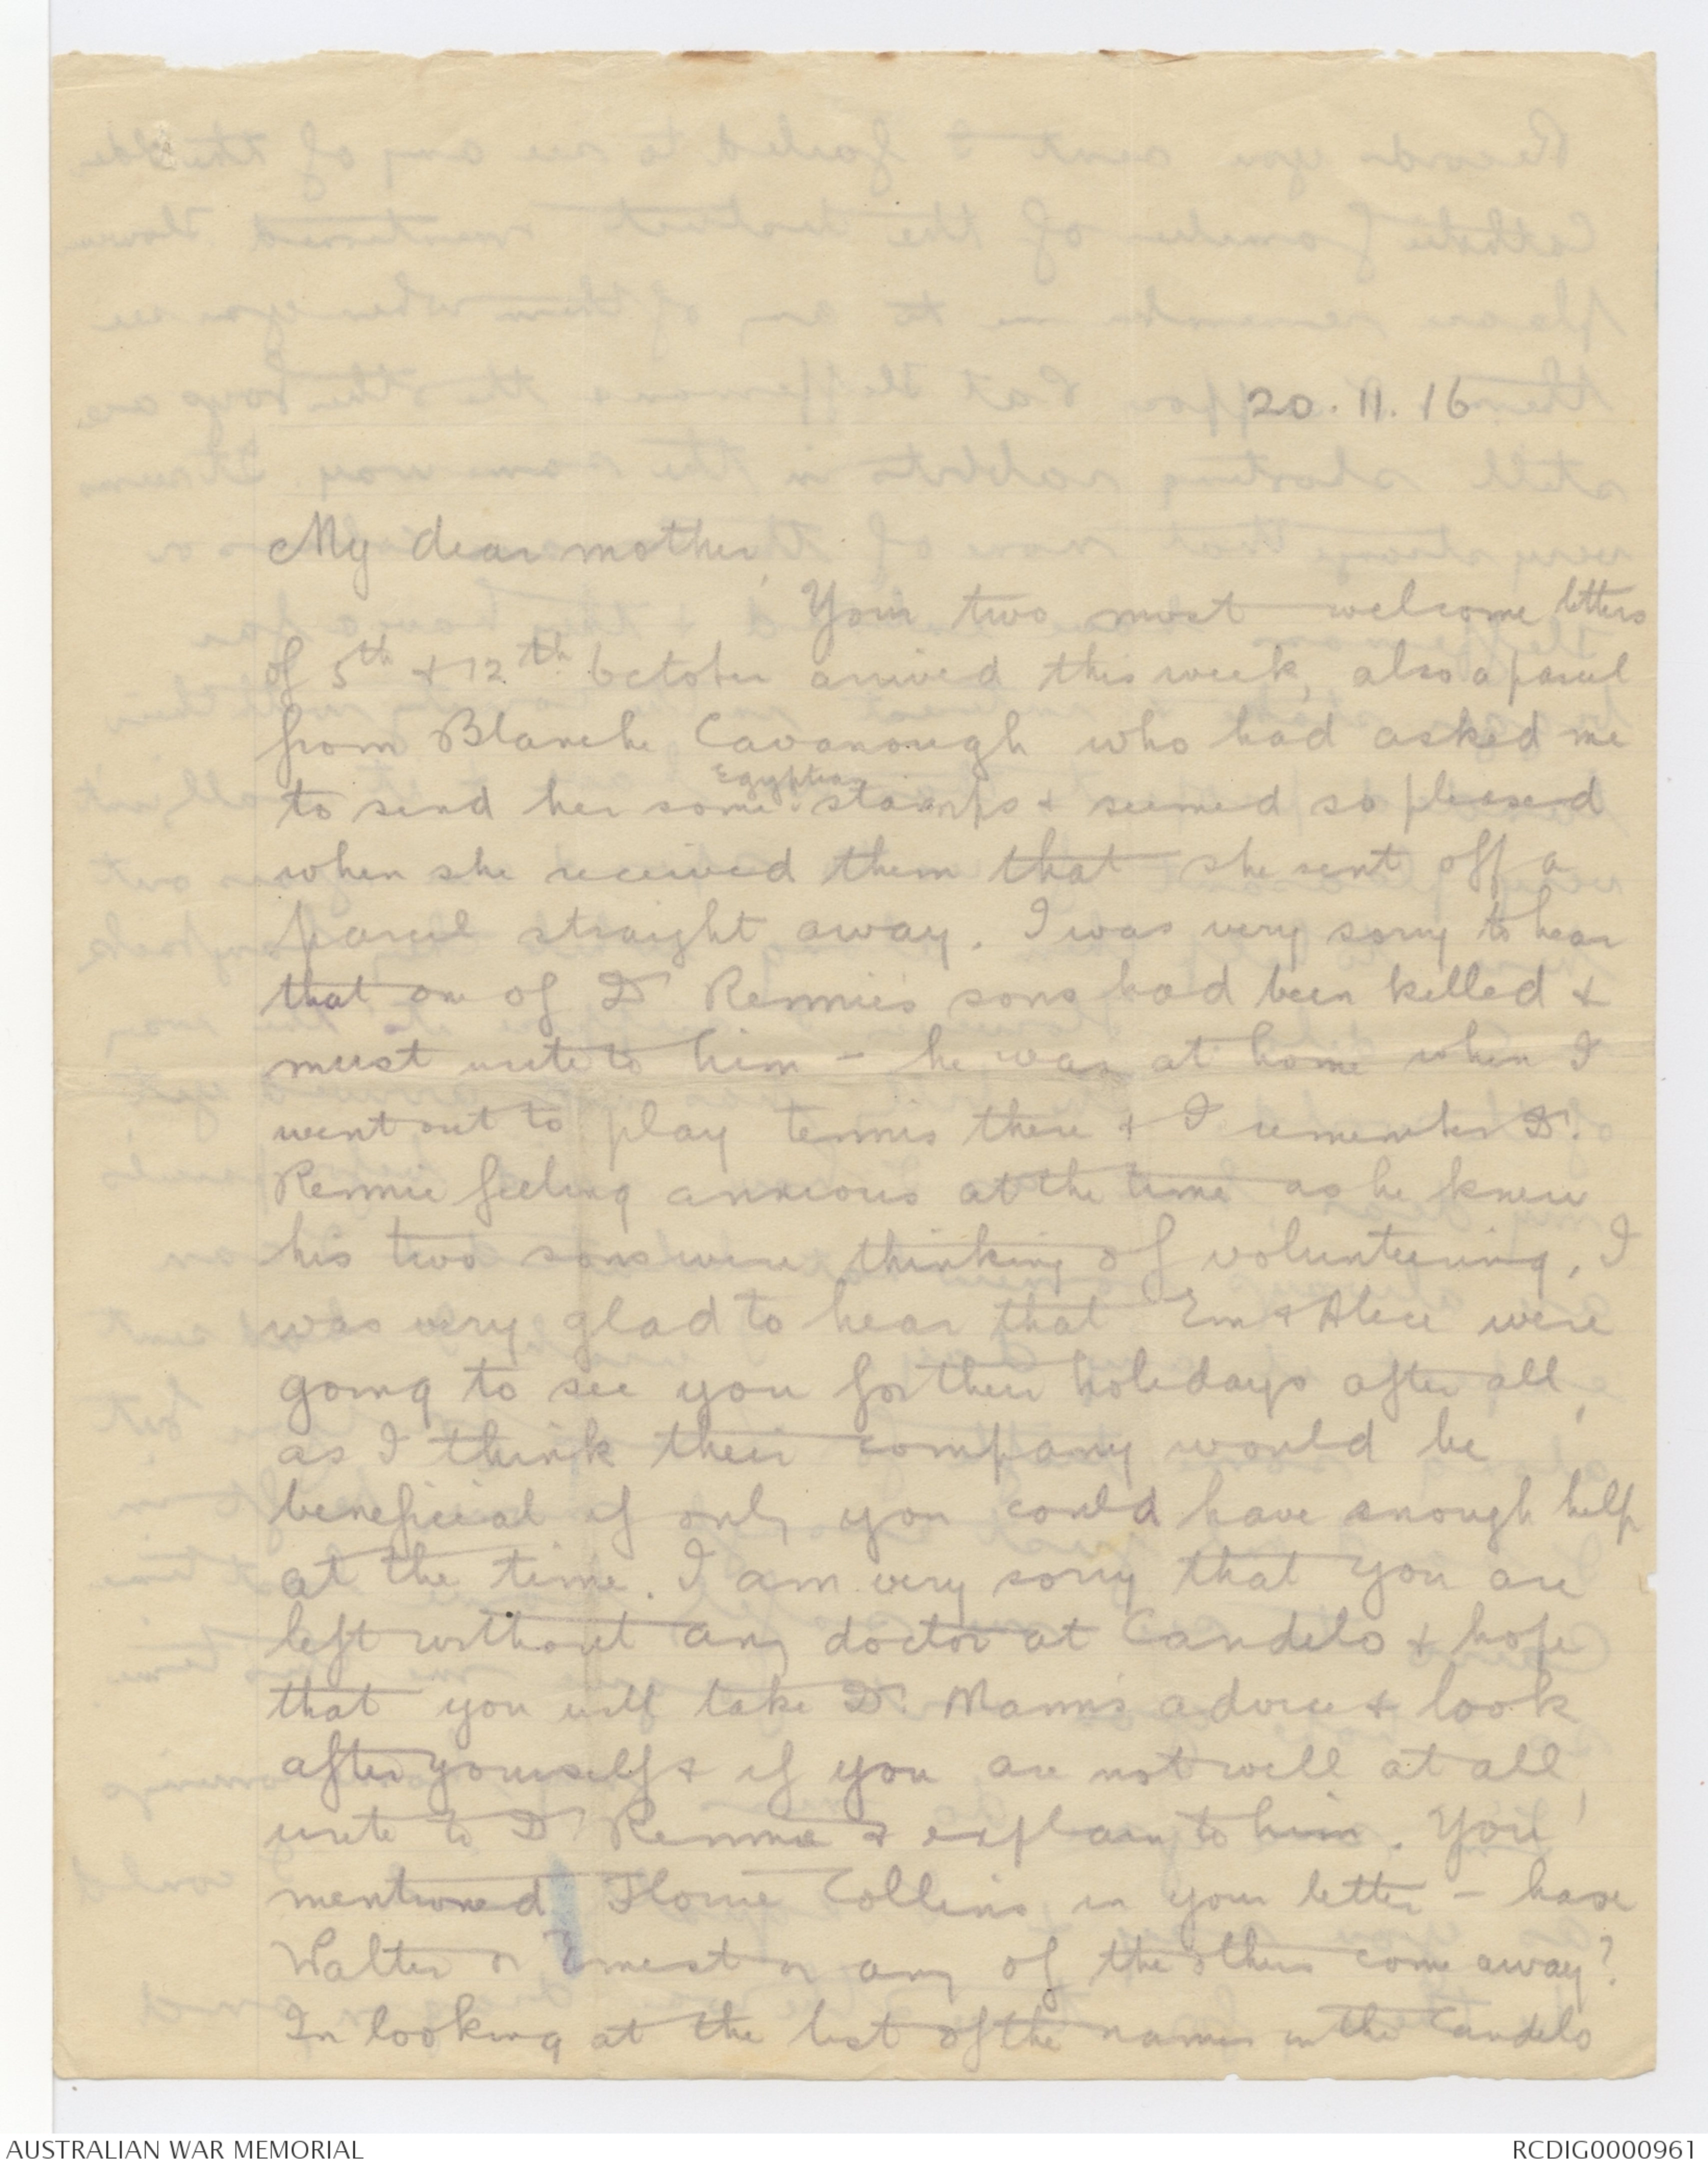 20.11.16
My dear mother,
Your two most welcome letters
of 5th & 12th October arrived this week, also a parcel
from Blanche Cavanough who had asked me
to send her some Egyptian stamps & seemed so pleased
when she received them that she sent off a
parcel straight away. I was very sorry to hear
that one of Dr Rennie's sons had been killed &
must write to him - he was at home when I
went out to play tennis there & I remember Dr.
Rennie feeling anxious at the time as he knew
his two sons were thinking of volunteering. I
was very glad to hear that Em & Alice were
going to see you for their holidays after all,
as I think their company would be
beneficial if only you could have enough help
at the time. I am very sorry that you are
left without any doctor at Candelo & hope
that you will take Dr. Mann's advice & look
after yourself & if you are not well at all,
write to Dr Rennie & explain to him. You
mentioned Florrie Collins in your letter - have
Walter or Ernest or any of the others come away?
In looking at the list of the names in the Candelo
AUSTRALIAN WAR MEMORIAL
RCDIG0000961